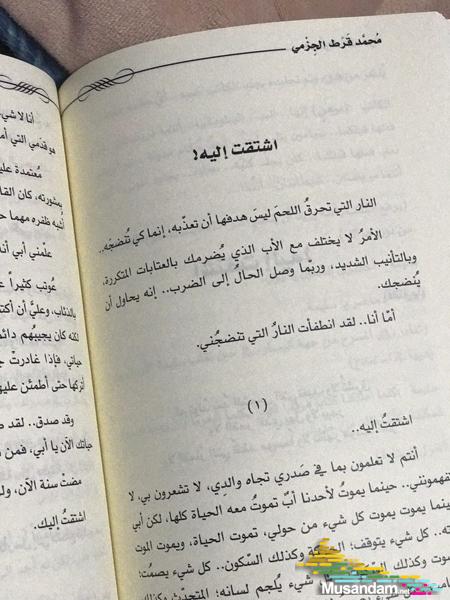 مُحمَّد قَرَط الجِزْمي
اشتقت إليه!
النار التي تحرقُ اللحمَ ليسَ هدفها أن تعذّبه، إنما كي تُنضجَه..
الأمرُ لا يختلف مع الأب الذي يُضرمك بالعتابات المتكررة،
وبالتأنيب الشديد، وربّما وصل الحالُ إلى الضرب.. إنه يحاول أن
يُنضجك.
أمّا أنا.. لقد انطفأت النارُ التي تنضجُني.
(١)
اشتقتُ إليه..
أنتم لا تعلمون بما في صَدري تجاه والدِي، لا تشعرون بي، لا
تفهمونني.. حينما يموتُ لأحدنا أبٌ تموتُ معه الحياة كلها، لكن أبي
حينما يموت يموت كل شيء من حولي، تموت الحياة، ويموت الموت
كل شيء يتوقف؛ وكذلك السّكون.. كل شيء يصمُت؛
وكذلك شيء يُلجم لسانه؛ المتحدث وكذلك
أنا لا شي
هو قدَمي التي أم
مُعتمدة علي
بمشورته، كان القا
أُشبه ظفره مهما ح
علّمني أبي أنه
عُوتب كثيراً ع
بالذئاب، وعليَّ أن أكت
لكنه كان يجيبُهم دائم
حياتي، فإذا غادرتُ ح
أتركها حتى أطمئن عليه
وقد صدق.. لقد ص
حياتك الآن يا أبي، فمن
مضتْ سنة الآن، ول
اشتقتُ إليك.
Musandam.net